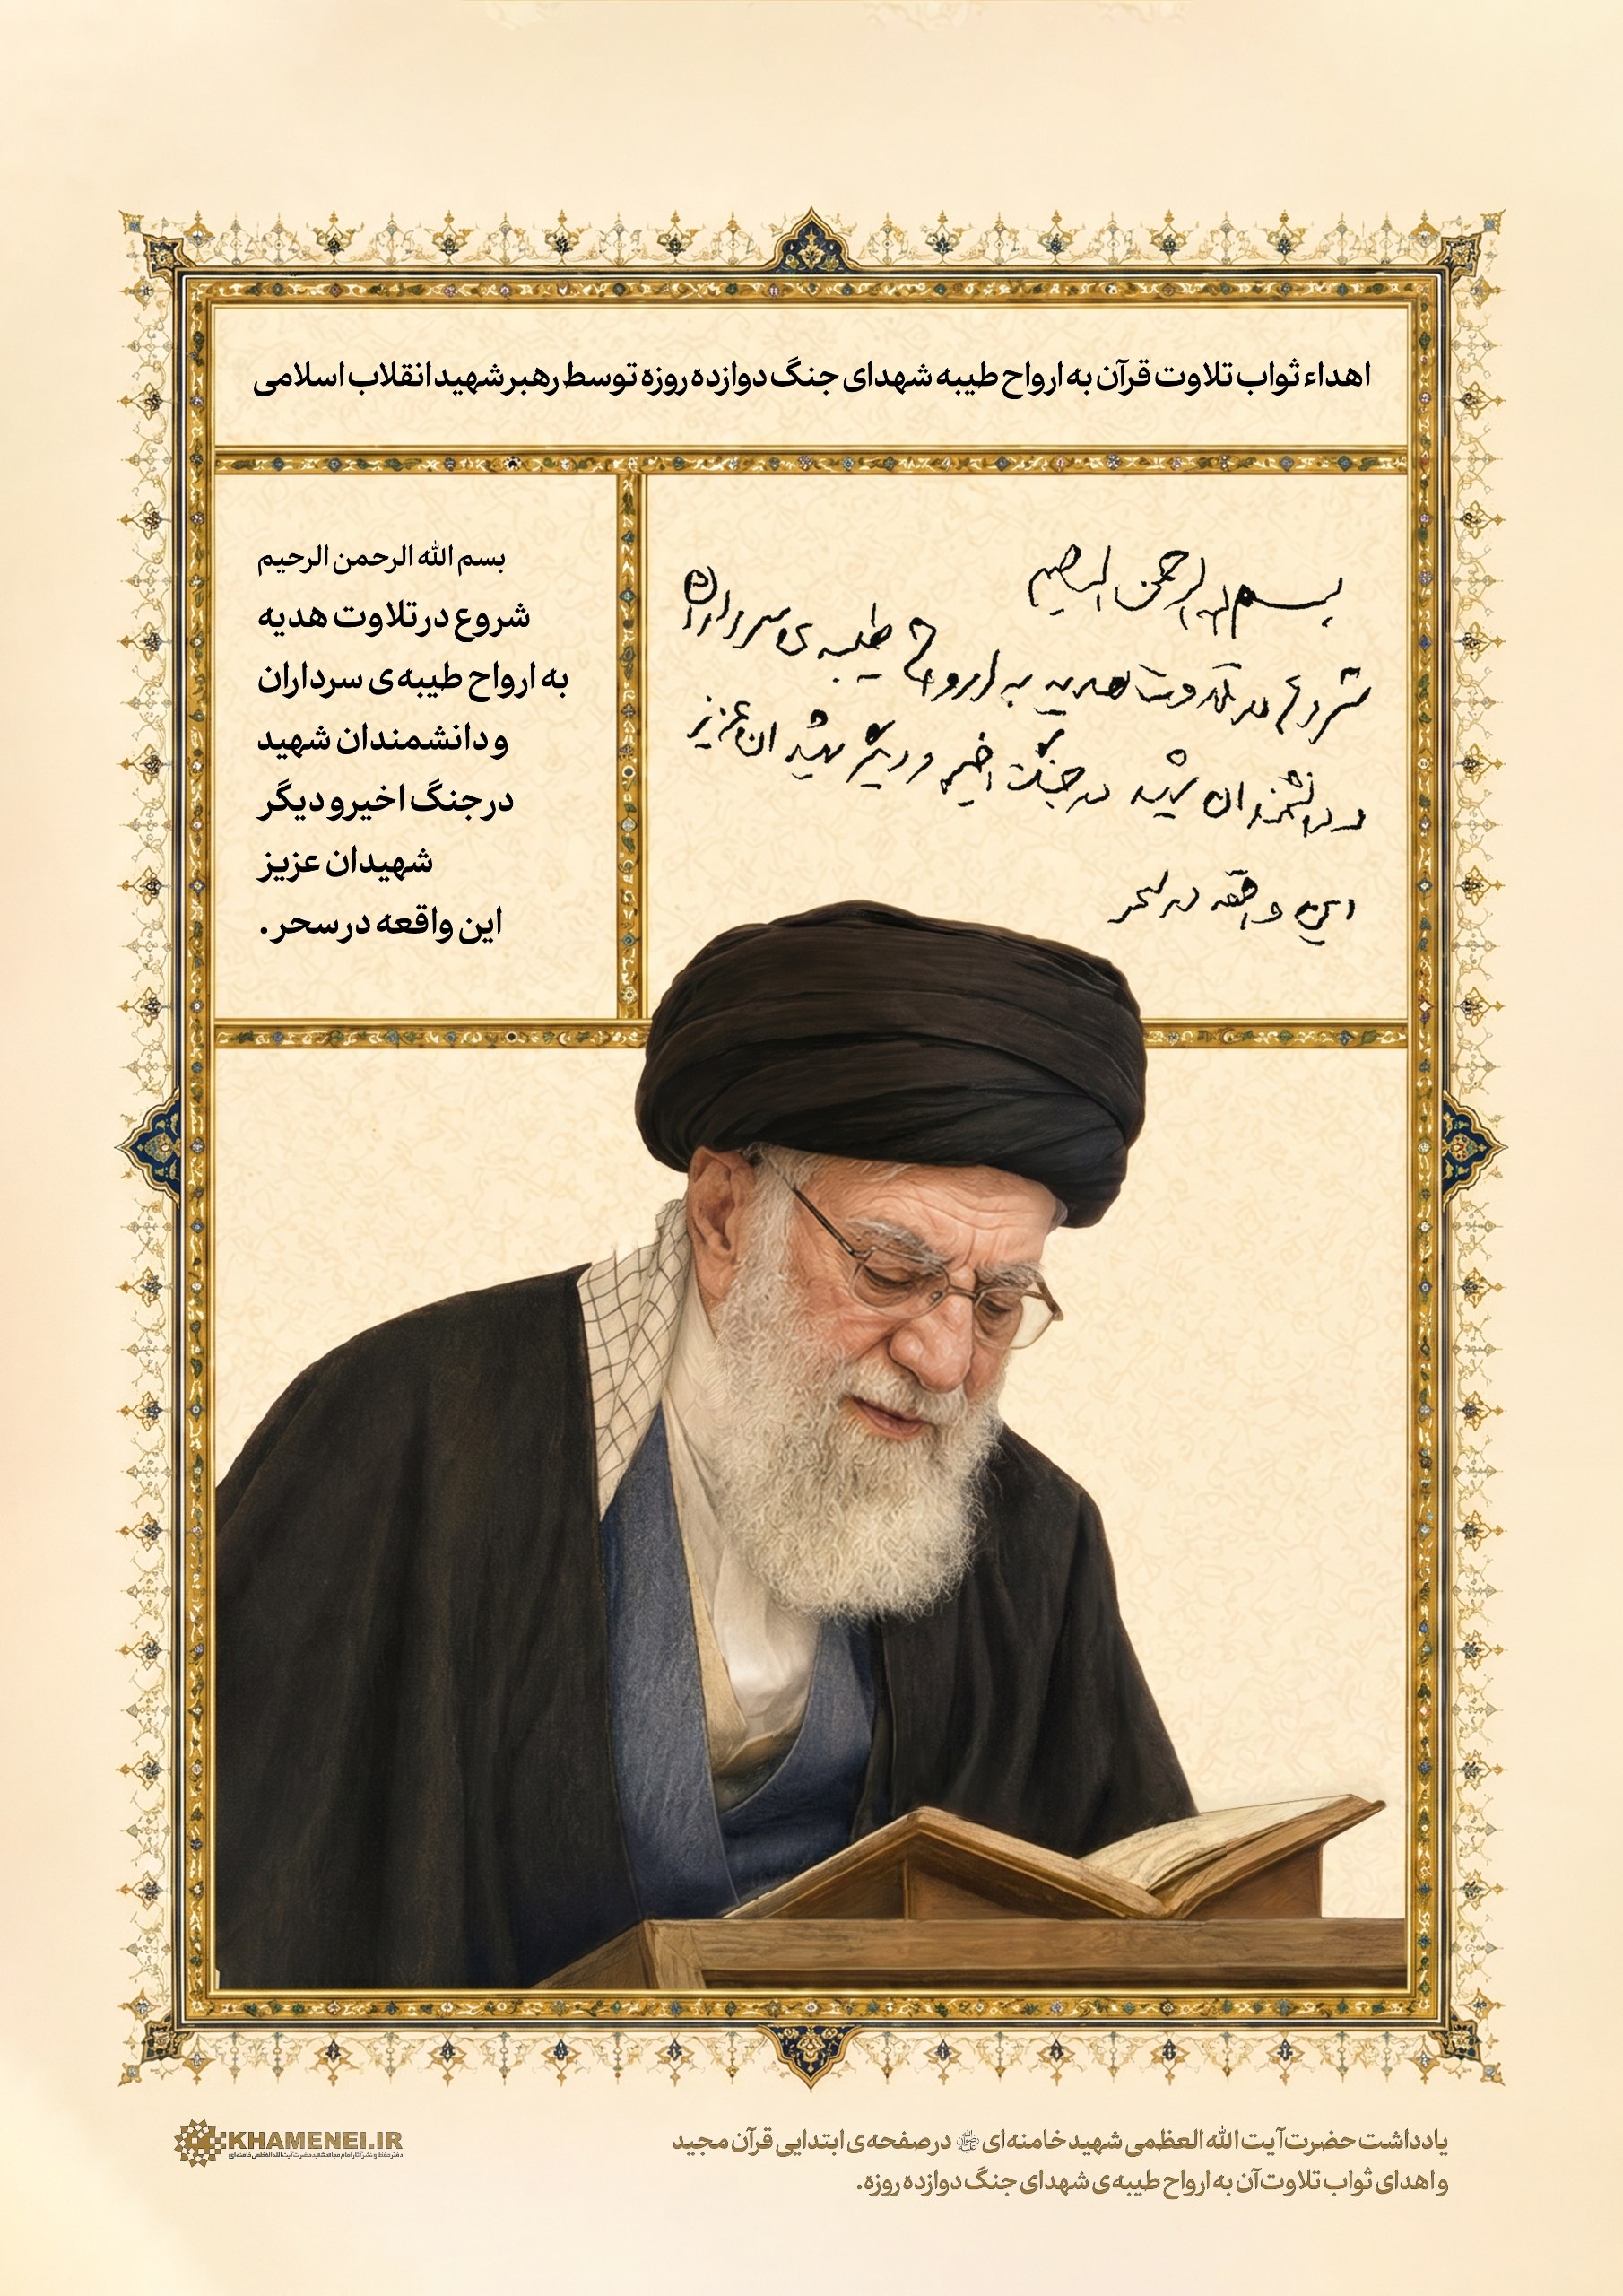 اهداء ثواب تلاوت قرآن به ارواح طیبه شهدای جنگ دوازده روزه توسط رهبر شهید انقلاب اسلامی
بسم الله الرحمن الرحیم
شروع در تلاوت هدیه به ارواح طیبه‌ی سرداران
و دانشمندان شهید در جنگ اخیر و دیگر شهیدان عزیز
این واقعه در سحر
بسم الله الرحمن الرحیم
شروع در تلاوت هدیه
به ارواح طیبه‌ی سرداران
و دانشمندان شهید
در جنگ اخیر و دیگر
شهیدان عزیز
این واقعه در سحر.
یادداشت حضرت آیت الله العظمی شهید خامنه‌ای در صفحه‌ی ابتدایی قرآن مجید
و اهدای ثواب تلاوت آن به ارواح طیبه‌ی شهدای جنگ دوازده روزه.
KHAMENEI.IR